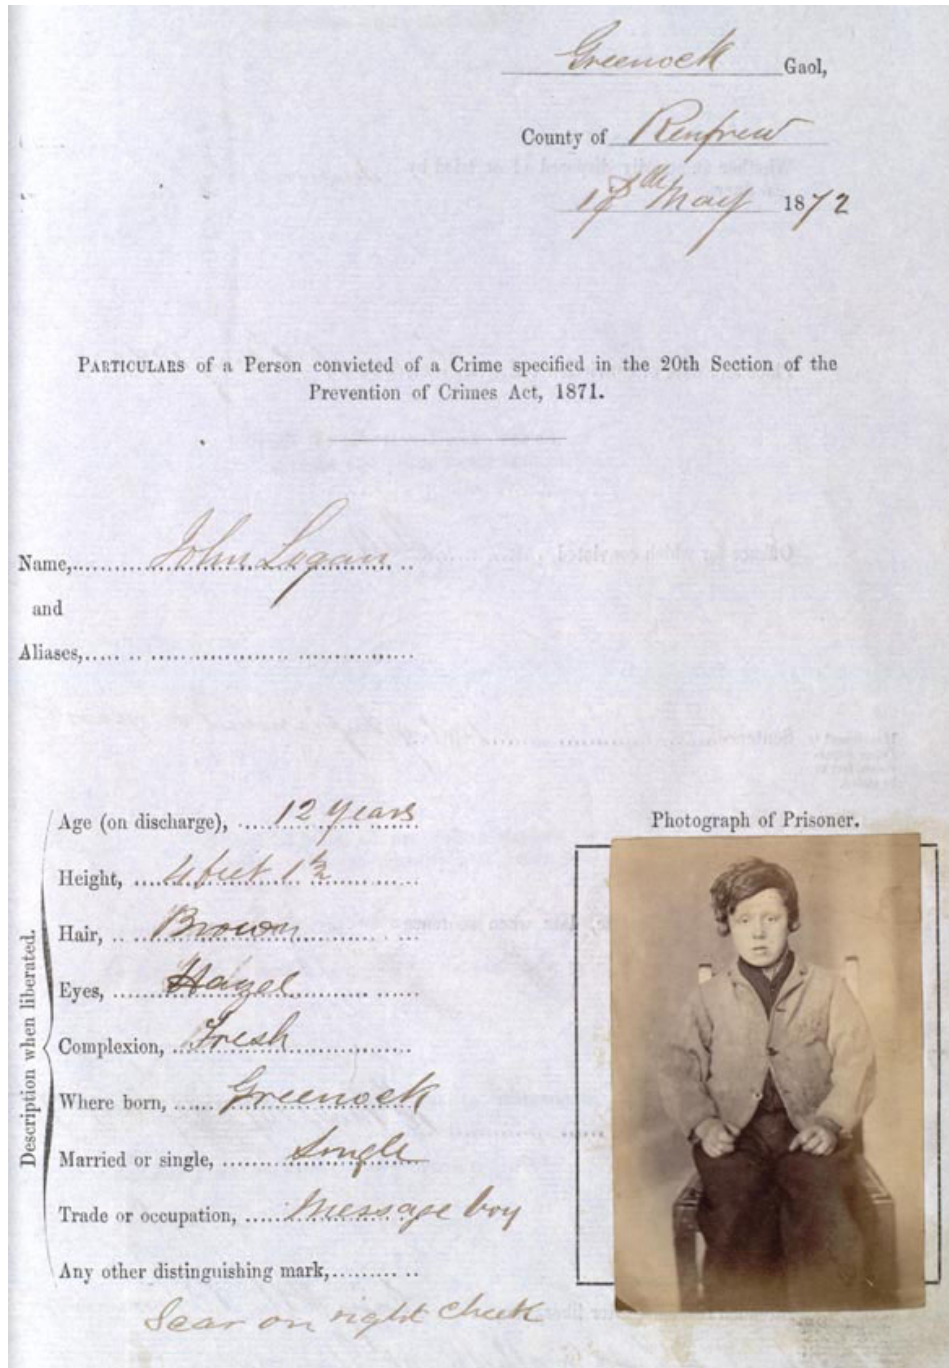 Greenock Gaol,
County of Renfrew
May 1872
PARTICULARS of a Person convicted of a Crime specified in the 20th Section of the
Prevention of Crimes Act, 1871.
Name, John Logan
and
Aliases,
Description when liberated.
Age (on discharge), 12 years
Height, 4 feet 1½
Hair, Brown
Eyes, Hazel
Complexion, Fresh
Where born, Greenock
Married or single, Single
Trade or occupation, Message boy
Any other distinguishing mark,
Scar on right cheek
Photograph of Prisoner.